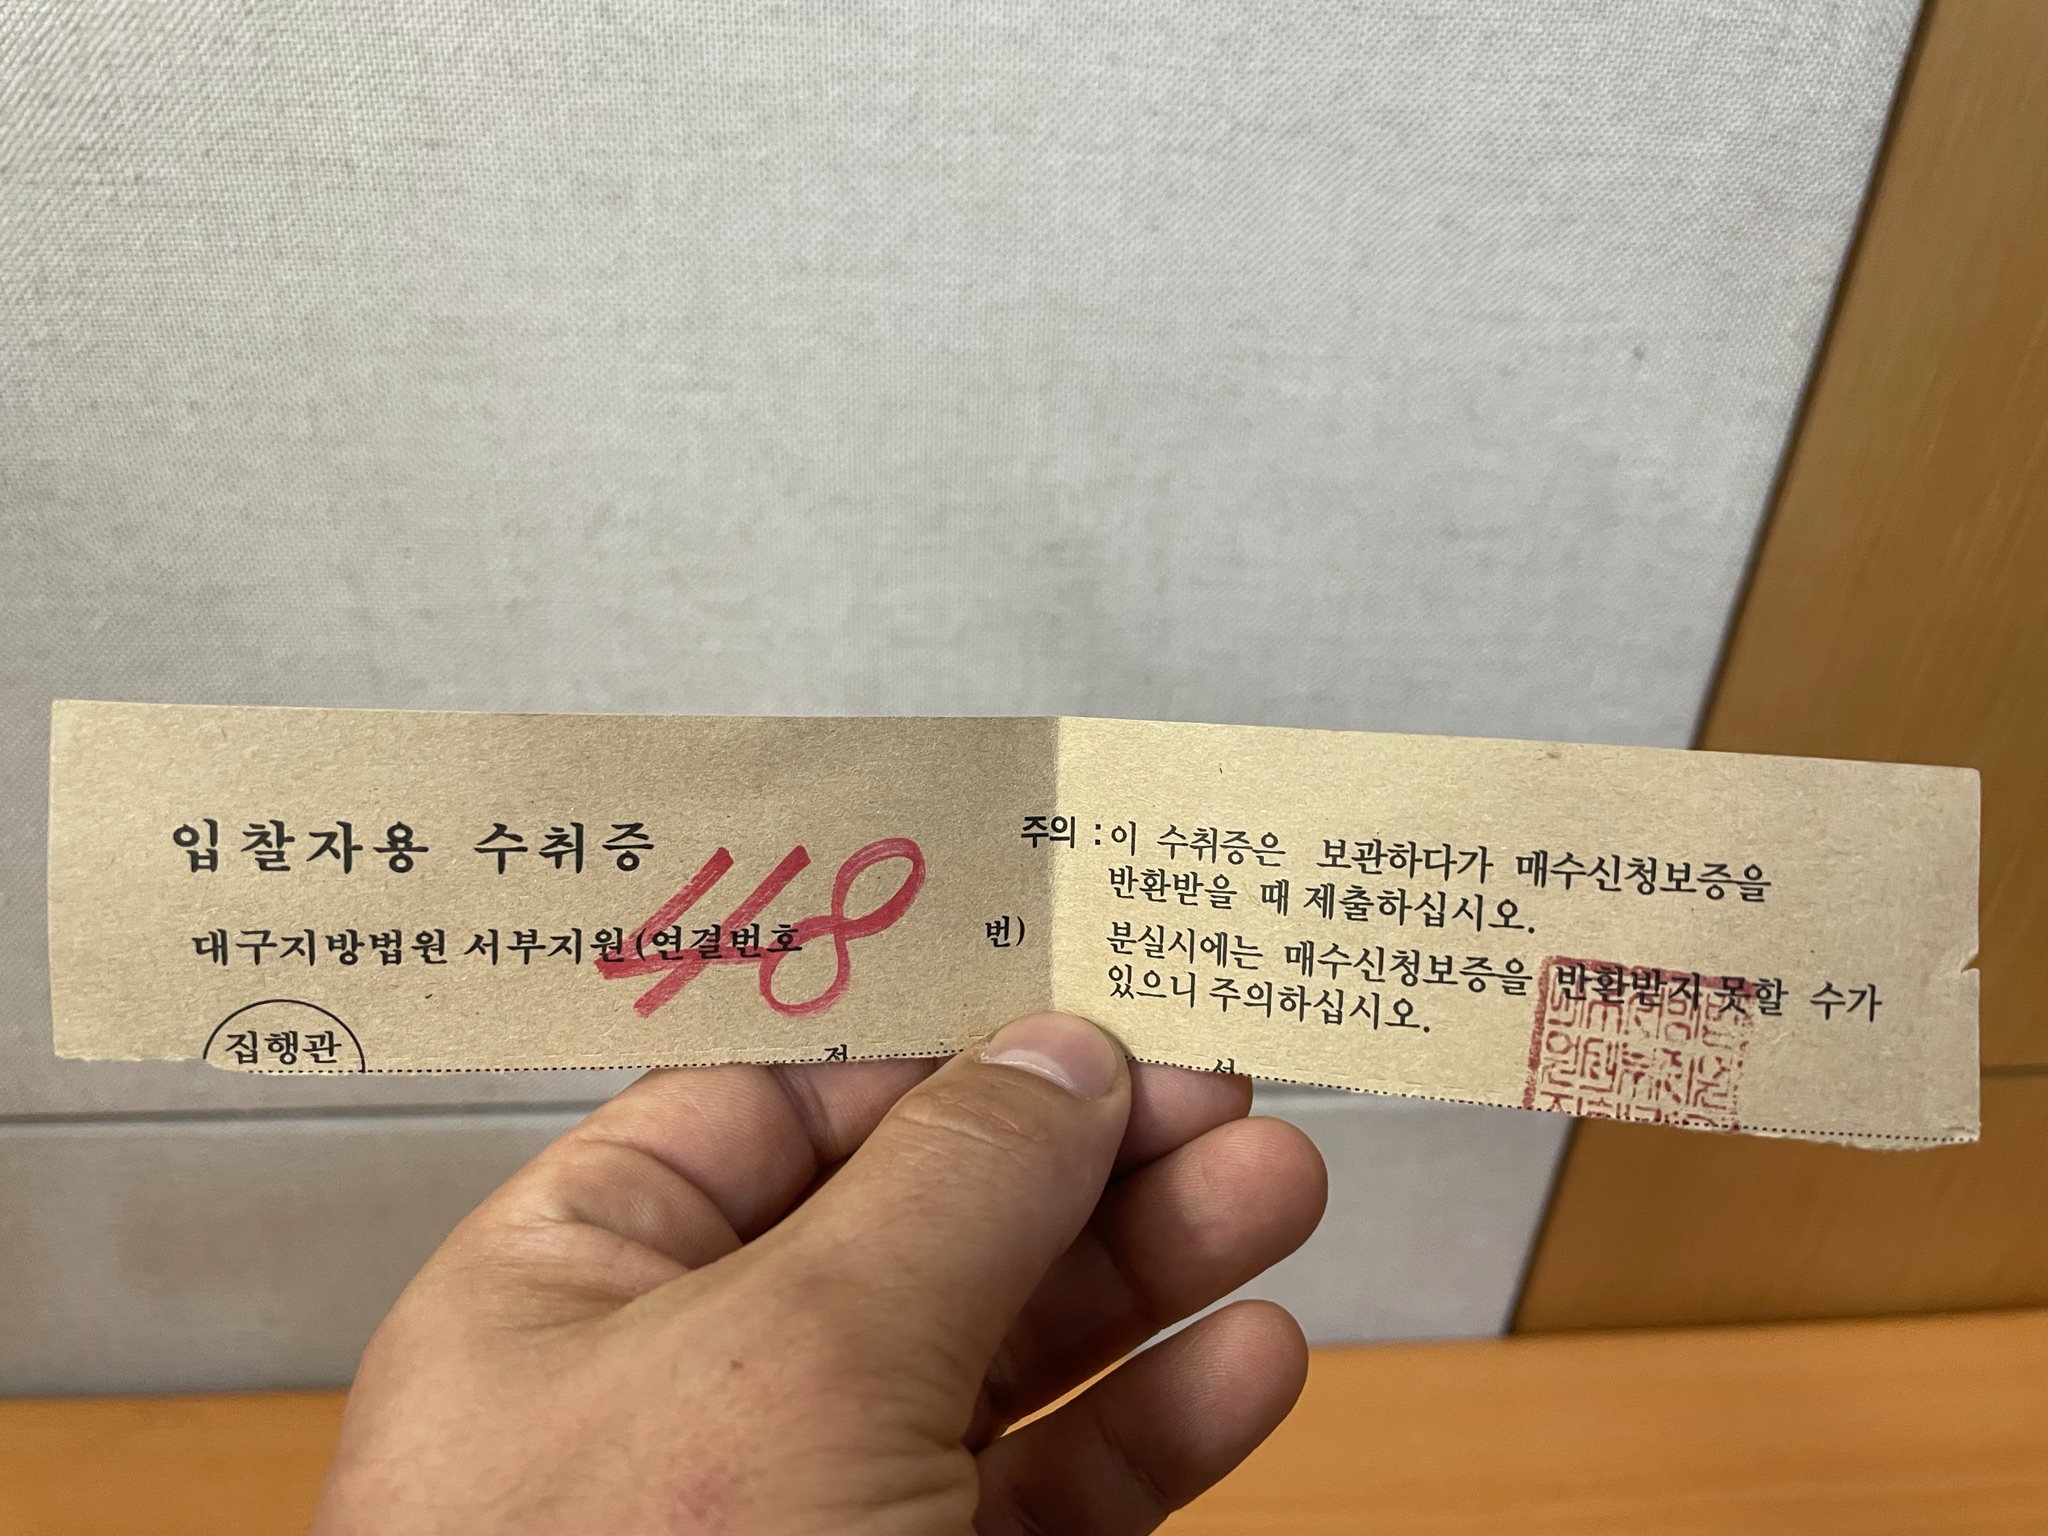 입찰자용 수취증
48
대구지방법원 서부지원(연결번호 번)
집행관
주의 : 이 수취증은 보관하다가 매수신청보증을
반환받을 때 제출하십시오.
분실시에는 매수신청보증을 반환받지 못할 수가
있으니 주의하십시오.